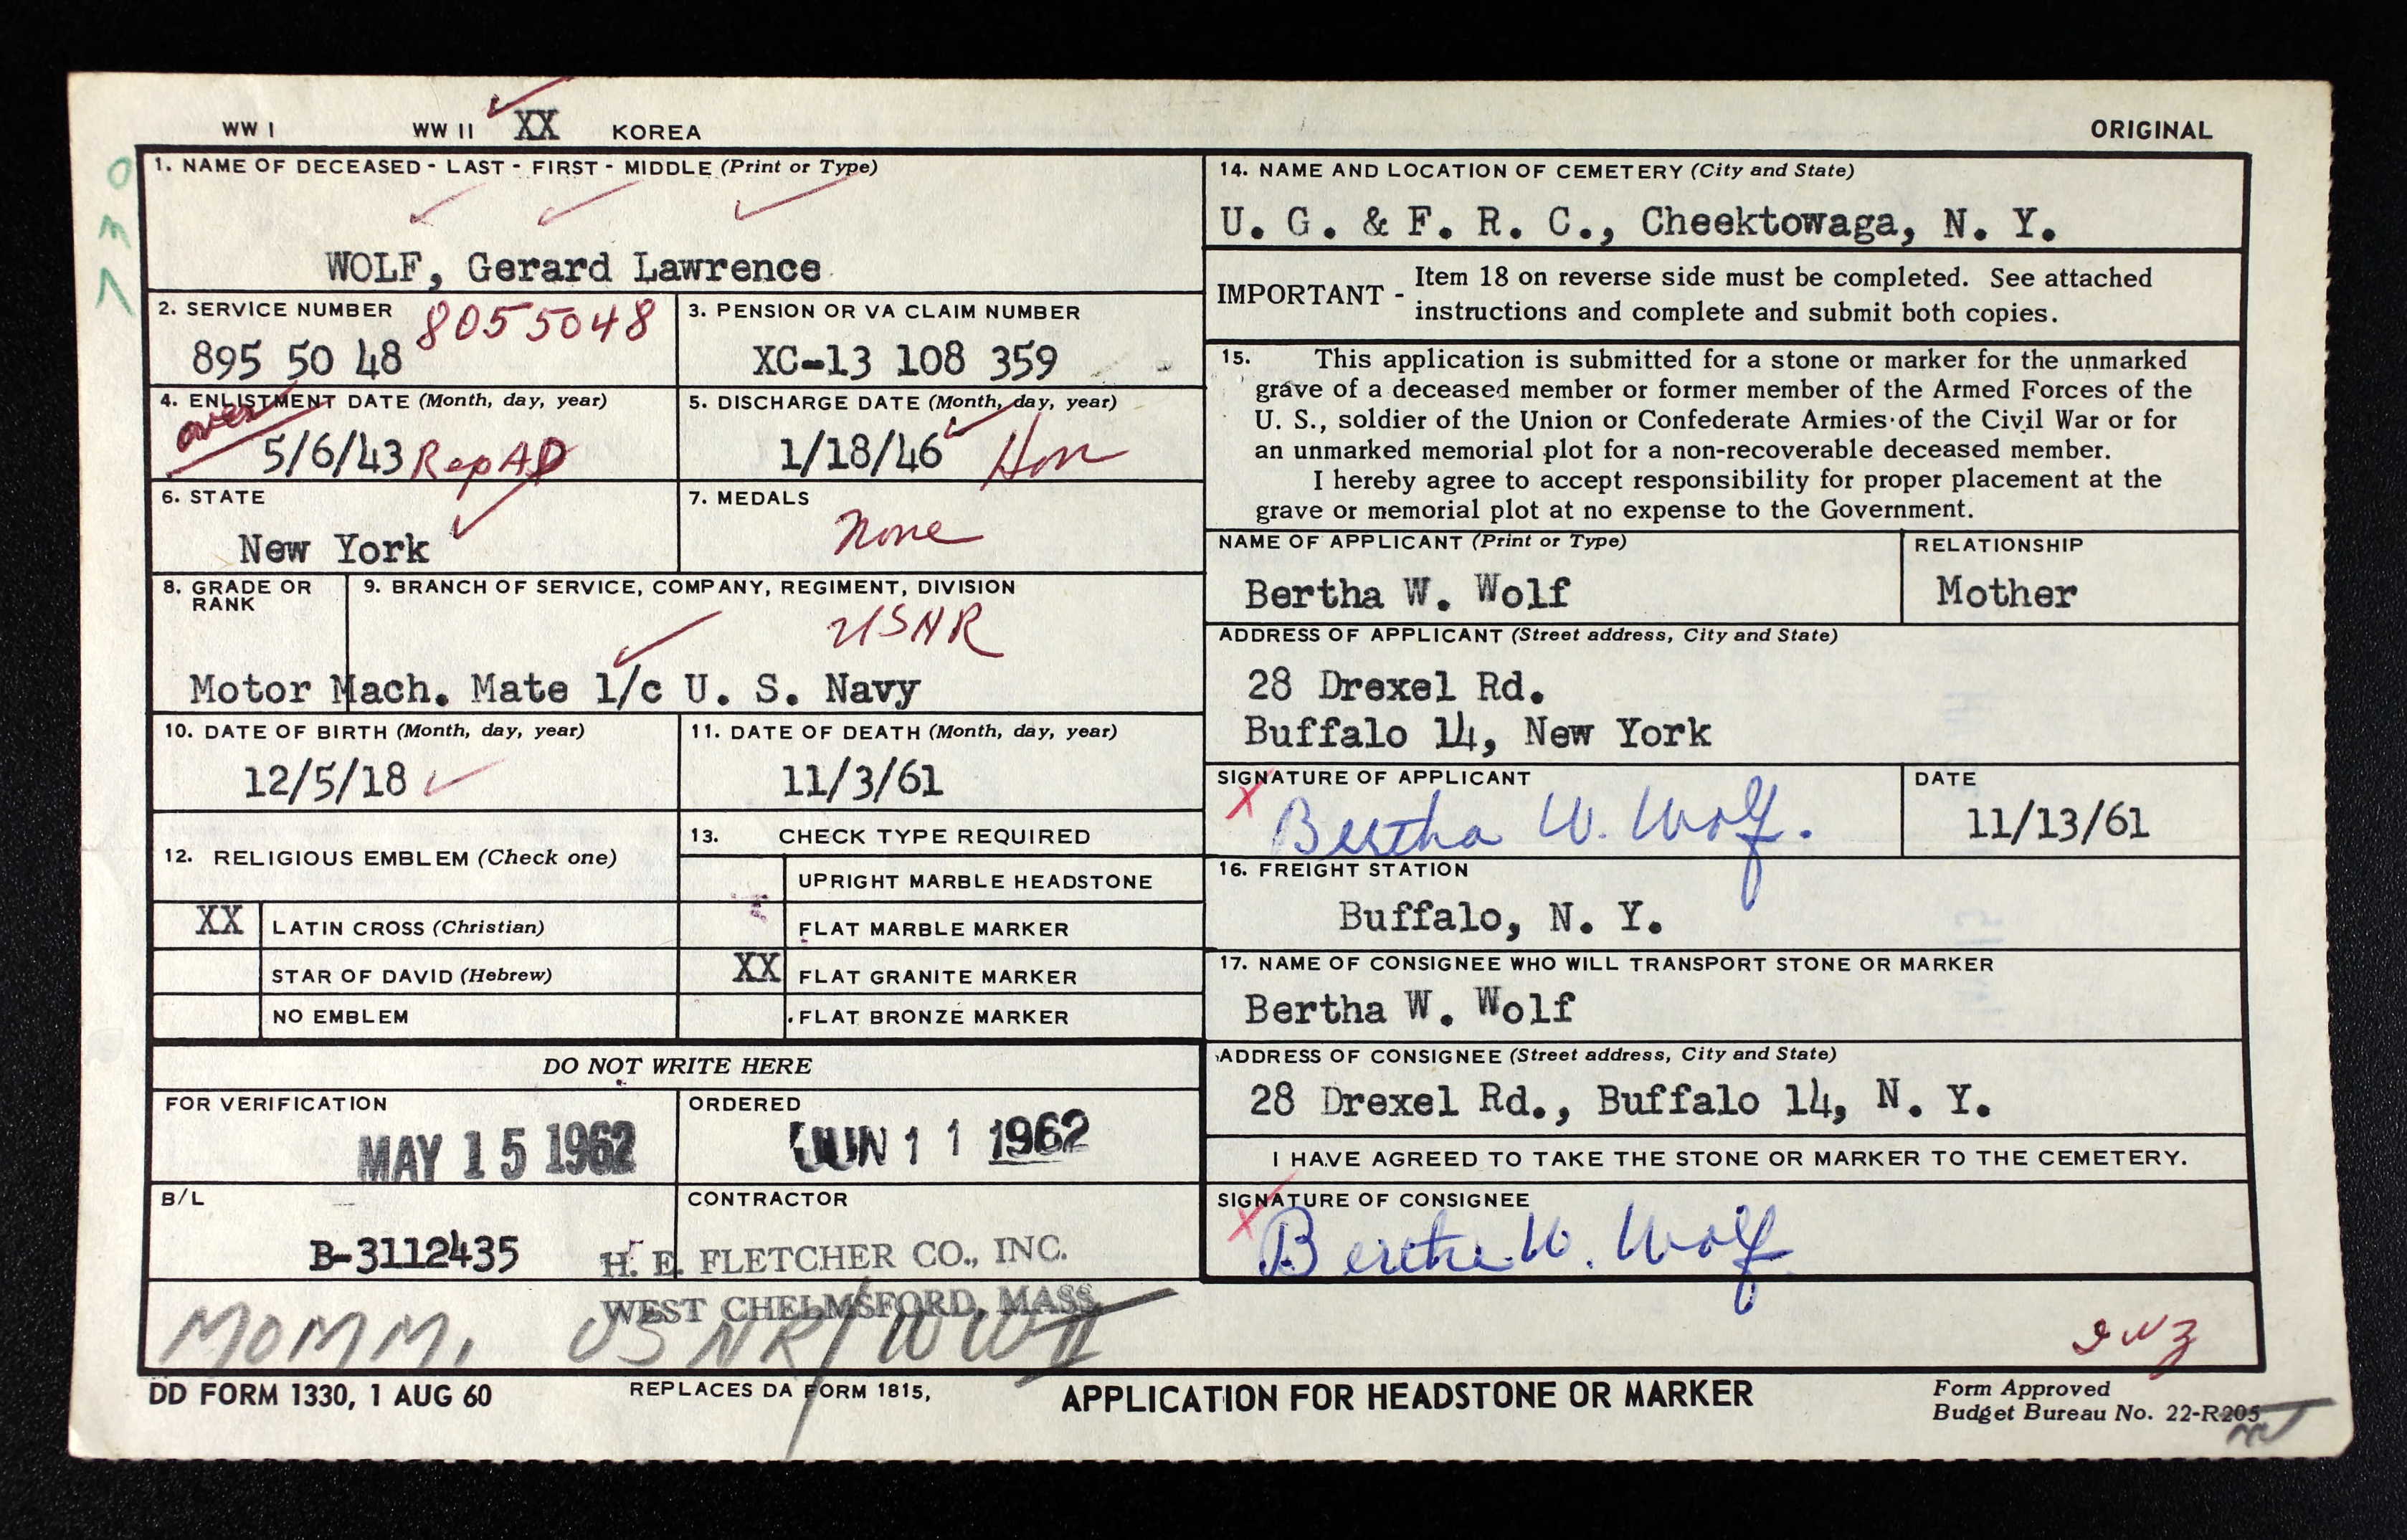 WW I WW II XX KOREA
ORIGINAL
730
1. NAME OF DECEASED - LAST - FIRST - MIDDLE (Print or Type)
WOLF, Gerard Lawrence
2. SERVICE NUMBER
8055048
895 50 48
3. PENSION OR VA CLAIM NUMBER
XC-13 108 359
4. ENLISTMENT DATE (Month, day, year)
over
5/6/43 RepAD
5. DISCHARGE DATE (Month, day, year)
1/18/46 Hon
6. STATE
New York
7. MEDALS
None
8. GRADE OR RANK
9. BRANCH OF SERVICE, COMPANY, REGIMENT, DIVISION
USNR
Motor Mach. Mate 1/c U. S. Navy
10. DATE OF BIRTH (Month, day, year)
12/5/18
11. DATE OF DEATH (Month, day, year)
11/3/61
12. RELIGIOUS EMBLEM (Check one)
XX LATIN CROSS (Christian)
STAR OF DAVID (Hebrew)
NO EMBLEM
13. CHECK TYPE REQUIRED
UPRIGHT MARBLE HEADSTONE
FLAT MARBLE MARKER
XX FLAT GRANITE MARKER
FLAT BRONZE MARKER
DO NOT WRITE HERE
FOR VERIFICATION
MAY 15 1962
ORDERED
JUN 11 1962
B/L
B-3112435
CONTRACTOR
H. E. FLETCHER CO., INC.
WEST CHELMSFORD, MASS.
MOMM1 USNR/WWII
14. NAME AND LOCATION OF CEMETERY (City and State)
U. G. & F. R. C., Cheektowaga, N. Y.
IMPORTANT - Item 18 on reverse side must be completed. See attached
instructions and complete and submit both copies.
15. This application is submitted for a stone or marker for the unmarked
grave of a deceased member or former member of the Armed Forces of the
U. S., soldier of the Union or Confederate Armies of the Civil War or for
an unmarked memorial plot for a non-recoverable deceased member.
I hereby agree to accept responsibility for proper placement at the
grave or memorial plot at no expense to the Government.
NAME OF APPLICANT (Print or Type)
Bertha W. Wolf
RELATIONSHIP
Mother
ADDRESS OF APPLICANT (Street address, City and State)
28 Drexel Rd.
Buffalo 14, New York
SIGNATURE OF APPLICANT
X Bertha W. Wolf.
DATE
11/13/61
16. FREIGHT STATION
Buffalo, N. Y.
17. NAME OF CONSIGNEE WHO WILL TRANSPORT STONE OR MARKER
Bertha W. Wolf
ADDRESS OF CONSIGNEE (Street address, City and State)
28 Drexel Rd., Buffalo 14, N. Y.
I HAVE AGREED TO TAKE THE STONE OR MARKER TO THE CEMETERY.
SIGNATURE OF CONSIGNEE
X Bertha W. Wolf
DD FORM 1330, 1 AUG 60
REPLACES DA FORM 1815,
APPLICATION FOR HEADSTONE OR MARKER
Form Approved
Budget Bureau No. 22-R205